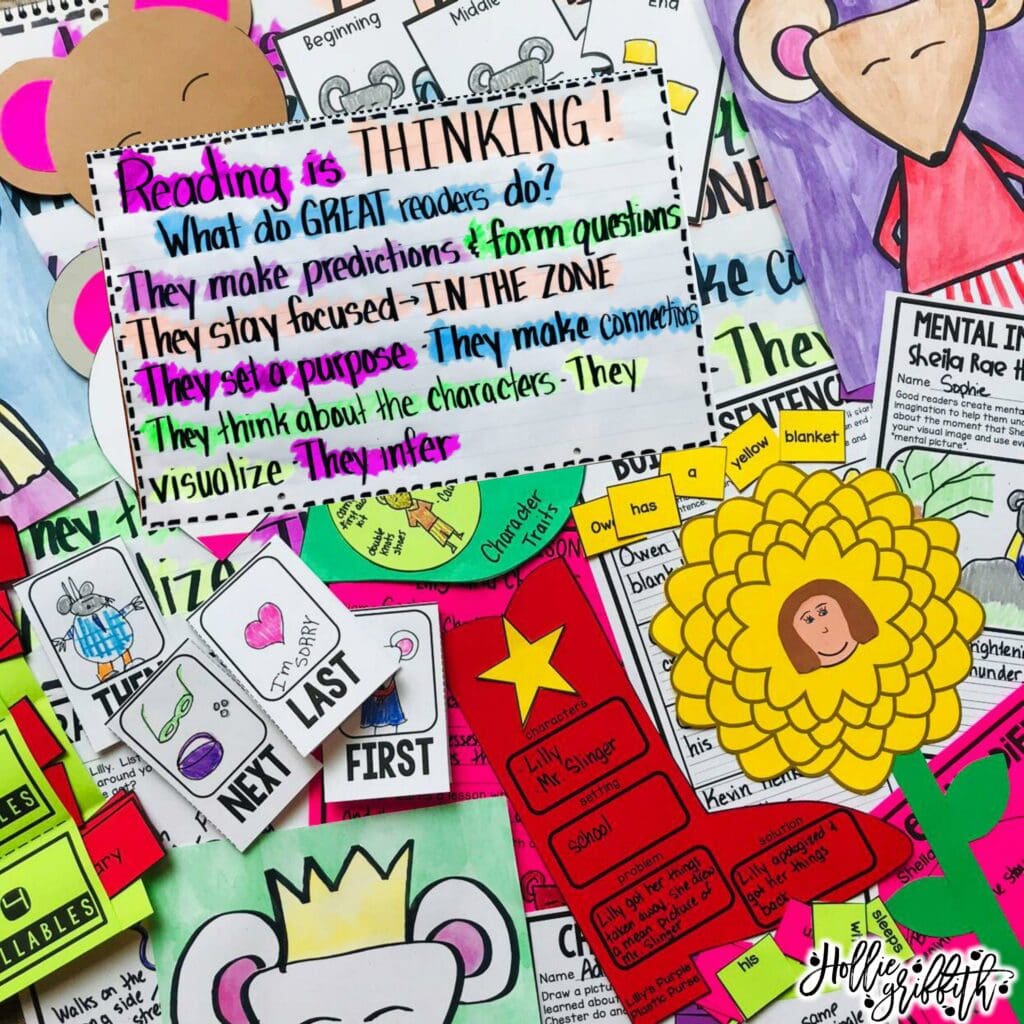 Beginning
Middle
End
Reading is THINKING!
What do GREAT readers do?
They make predictions & form questions
They stay focused→IN THE ZONE
They set a purpose -They make connections
They think about the characters - They
visualize They infer
ke co
They
MENTAL IM
Sheila Rae
Name Sophie
Good readers create mental
"mental picture".
SENTENCE
blanket
yellow
a
has
Owen
Owen
blank
his
Kevin Henk
Character
Traits
double
knots
shoes
THEN
I'm SORRY
LAST
NEXT
FIRST
characters
Lilly
Mr. Slinger
setting
school
problem
Lilly got her things
taken away. She drew
a mean Picture of
Mr. Slinger
solution
Lilly apologized &
got her things
back
Lilly's Purple
Plastic Purse
4
Walks on the
Name
Draw a pictur
learned about
Chester do an
his
sleeps
same
simple
Hollie
griffith